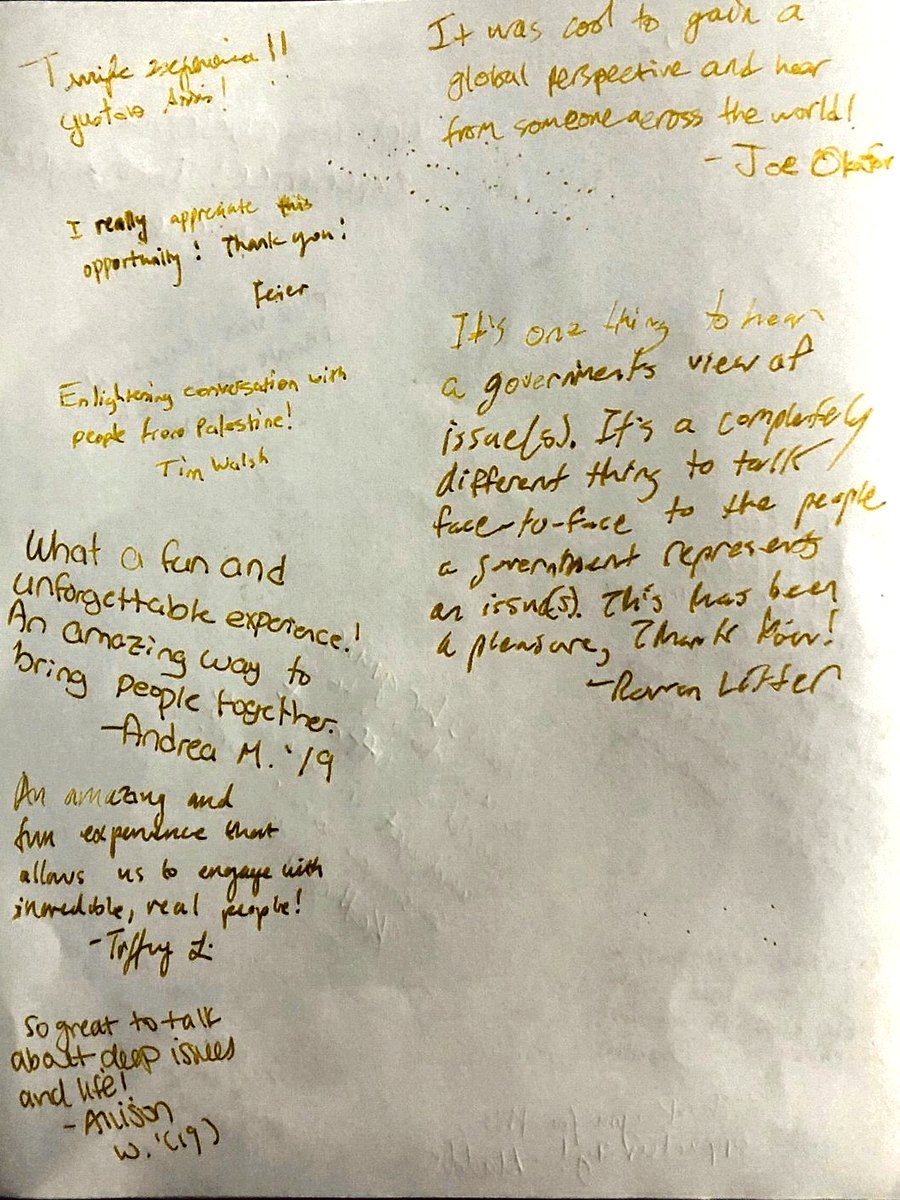 Terrific experience!!
Gustavo
I really appreciate this
opportunity! Thank you!
Feier
Enlightening conversation with
people from Palestine!
Tim Walsh
What a fun and
unforgettable experience!
An amazing way to
bring people together.
-Andrea M. '19
An amazing and
fun experience that
allows us to engage with
incredible, real people!
So great to talk
about deep issues
and life!
-Allison
W. '(19)
It was cool to gain a
global perspective and hear
from someone across the world!
- Joe Okafor
It's one thing to hear
a governments view of
issue(s). It's a completely
different thing to talk
face-to-face to the people
a government represents
on issue(s). This has been
a pleasure, Thank You!